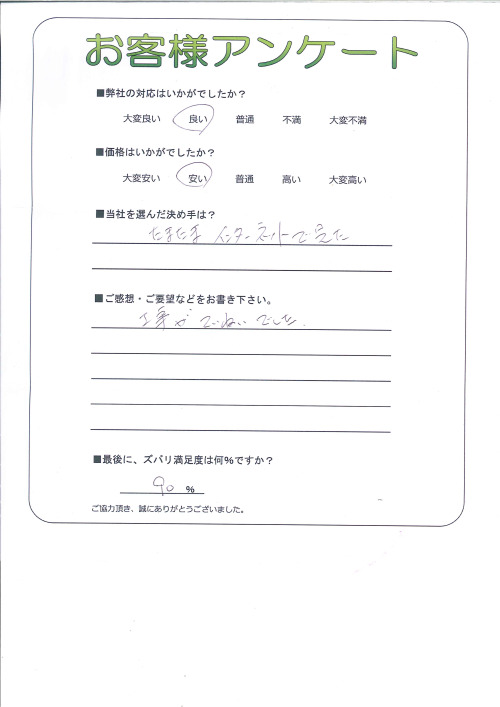 お客様アンケート
■弊社の対応はいかがでしたか？
大変良い 良い 普通 不満 大変不満
■価格はいかがでしたか？
大変安い 安い 普通 高い 大変高い
■当社を選んだ決め手は？
たまたま インターネットで見た
■ご感想・ご要望などをお書き下さい。
工事が ていねいでした.
■最後に、ズバリ満足度は何%ですか？
90 %
ご協力頂き、誠にありがとうございました。